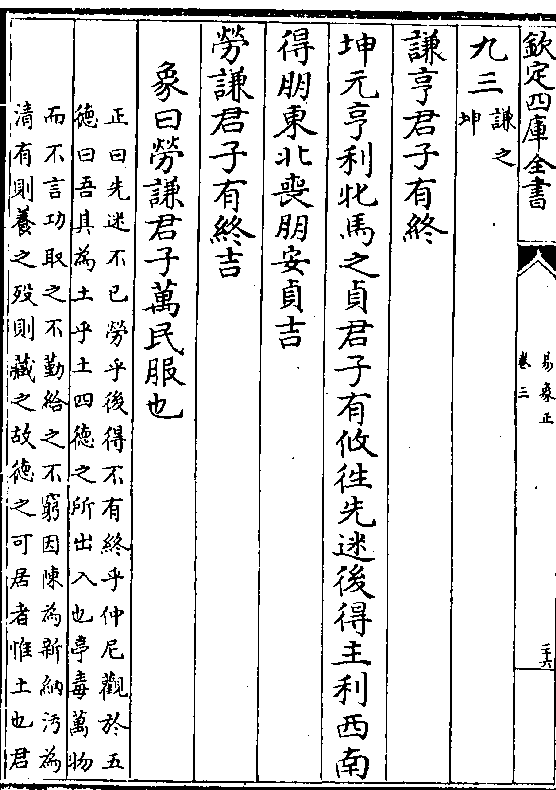 欽定四庫全書
易象正
卷三
二十六
九三
謙之
坤
謙亨君子有終
坤元亨利牝馬之貞君子有攸往先迷後得主利西南
得朋東北喪朋安貞吉
勞謙君子有終吉
象曰勞謙君子萬民服也
正曰先迷不已勞乎後得不有終乎仲尼觀於五
德曰吾其為土乎土四德之所出入也亭毒萬物
而不言功取之不勤給之不窮因陳為新納污為
清有則養之歿則藏之故德之可居者惟土也君